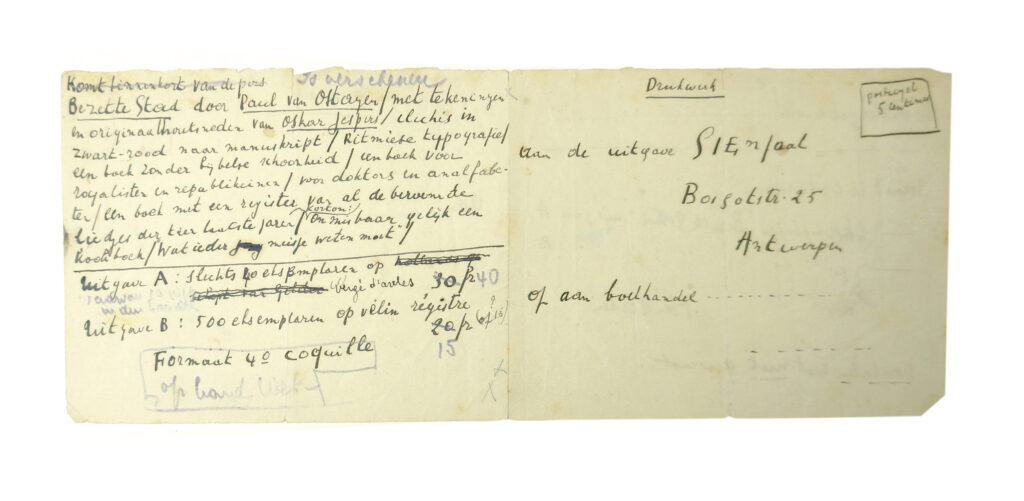 Komt binnenkort van de pers Is verschenen
Bezette Stad door Paul van Ostayen / met tekeningen
en originaalhoutsneden van Oskar Jespers / clichés in
zwart-rood naar manuskript / Ritmiese typografie /
een boek zonder bijbelse schoonheid / een boek voor
royalisten en republikeinen / voor doktors en analfabe-
ten / een boek met een register van al de beroemde
liedjes der tien laatste jaren / kortom: "Onmisbaar gelijk een
kookboek / Wat ieder jong meisje weten moet" /
Uitgave A : slechts 40 eksemplaren op hollands
van Gelder vergé d'arches 30 fr 40
Uitgave B : 500 eksemplaren op vélin régistre
20 fr (of 15)
15
Formaat 4º coquille
op hand
Drukwerk
postzegel
5 centimes
Aan de uitgave SIEnjaal
Bosgotstr. 25
Antwerpen
of aan boekhandel